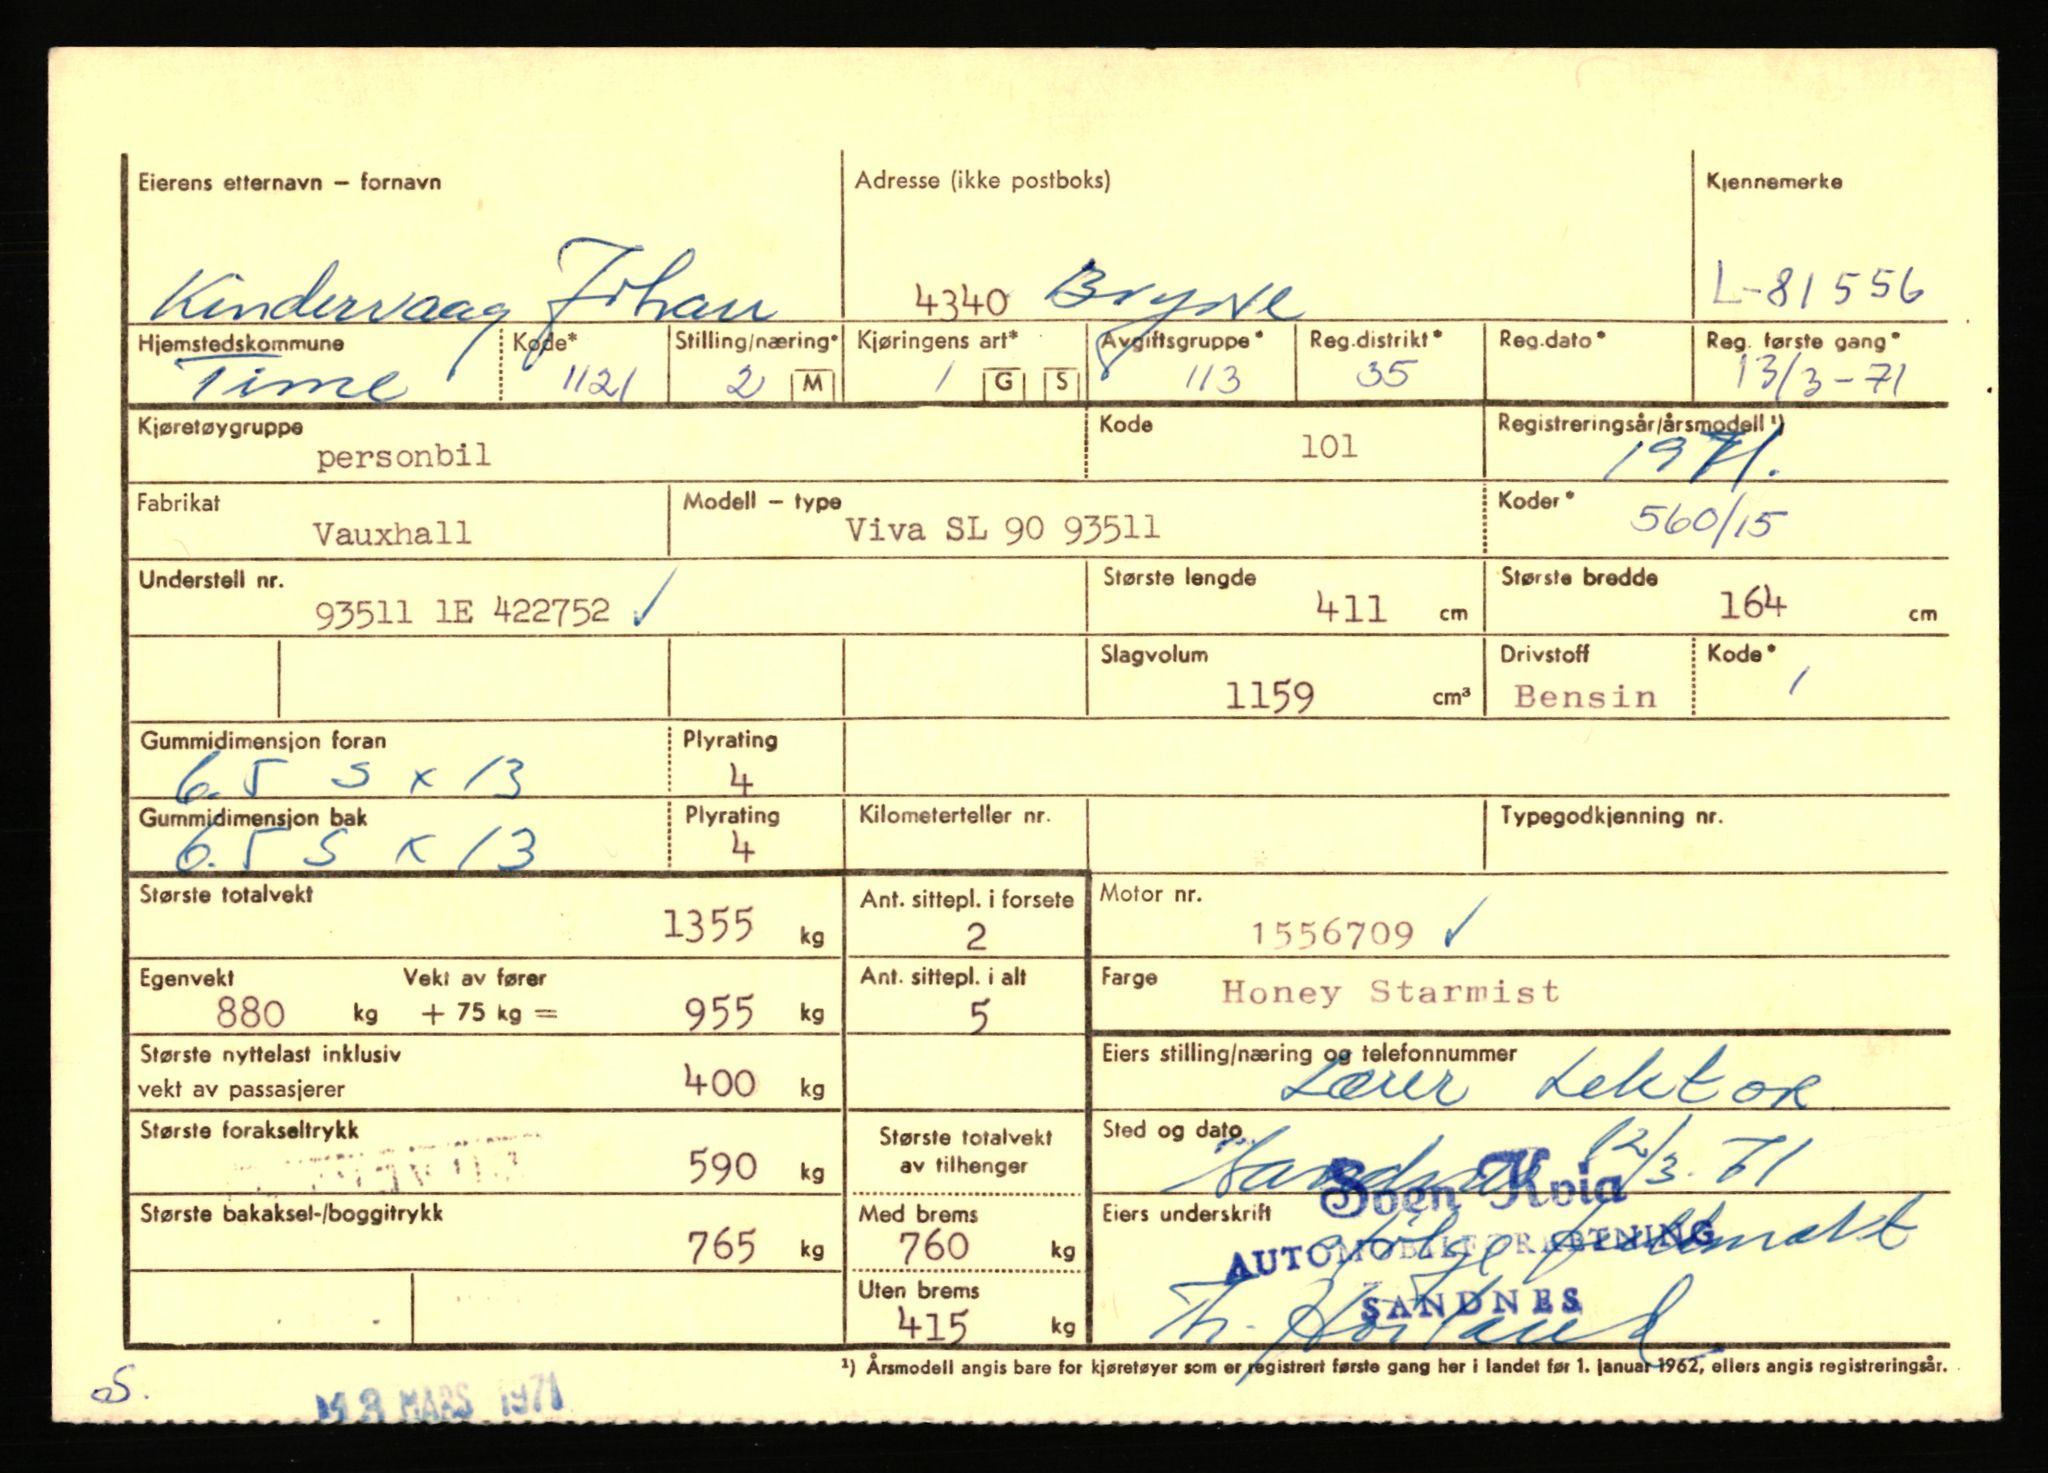 Eierens etternavn – fornavn
Adresse (ikke postboks)
Kjennemerke
Kindervaag Johan
4340 Bryne
L-81556
Hjemstedskommune
Kode*
Stilling/næring*
Kjøringens art*
Avgiftsgruppe*
Reg.distrikt*
Reg.dato*
Reg. første gang*
Time
1121
2 M
1 G S
113
35
13/3-71
Kjøretøygruppe
Kode
Registreringsår/årsmodell ¹)
personbil
101
1971.
Fabrikat
Modell – type
Koder*
Vauxhall
Viva SL 90 93511
560/15
Understell nr.
Største lengde
Største bredde
93511 1E 422752 ✓
411 cm
164 cm
Slagvolum
Drivstoff
Kode*
1159 cm³
Bensin
1
Gummidimensjon foran
Plyrating
6.5 S x 13
4
Gummidimensjon bak
Plyrating
Kilometerteller nr.
Typegodkjenning nr.
6.5 S x 13
4
Største totalvekt
Ant. sittepl. i forsete
Motor nr.
1355 kg
2
1556709 ✓
Egenvekt
Vekt av fører
Ant. sittepl. i alt
Farge
880 kg + 75 kg = 955 kg
5
Honey Starmist
Største nyttelast inklusiv
vekt av passasjerer
400 kg
Eiers stilling/næring og telefonnummer
Lærer Lektor
Største forakseltrykk
590 kg
Største totalvekt
av tilhenger
Sted og dato
Sandnes 12/3.71
Sven Kvia
Største bakaksel-/boggitrykk
Med brems
Eiers underskrift
765 kg
760 kg
ifølge fullmakt
AUTOMOBILFORRETNING
Uten brems
415 kg
SANDNES
Th. Høiland
¹) Årsmodell angis bare for kjøretøyer som er registrert første gang her i landet før 1. januar 1962, ellers angis registreringsår.
S.
MARS 1971